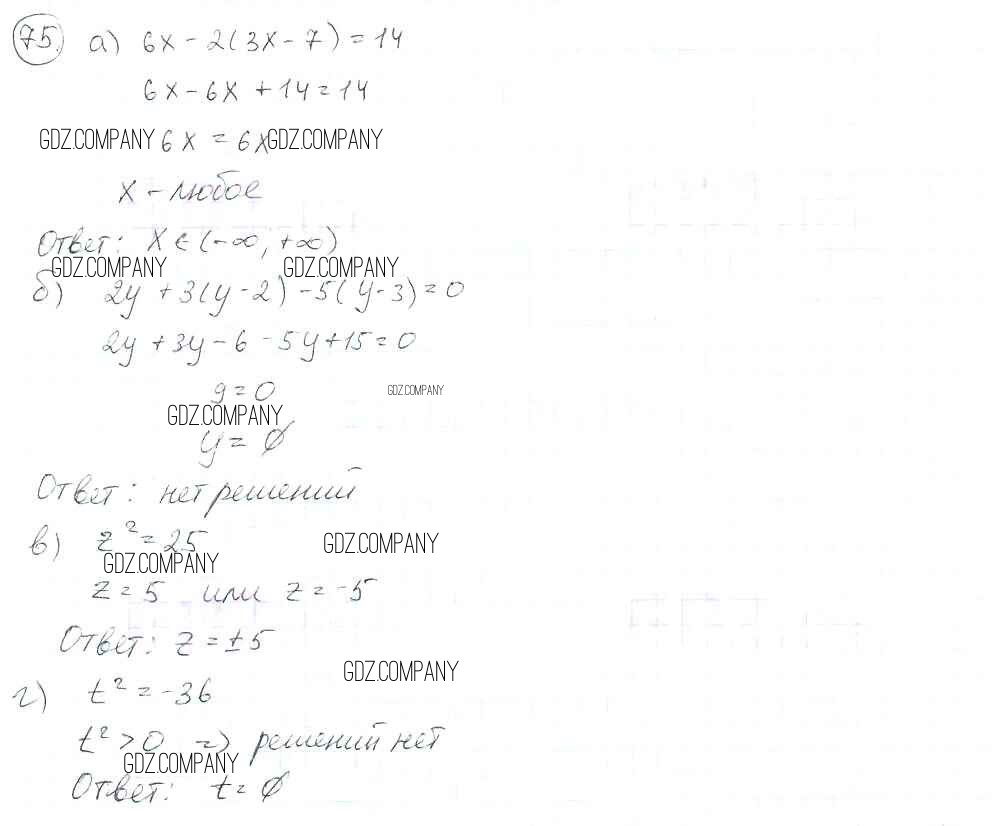 75. а) 6x - 2(3x - 7) = 14
6x - 6x + 14 = 14
GDZ.COMPANY 6x = 6x GDZ.COMPANY
x - любое
Ответ: x ∈ (-∞, +∞)
GDZ.COMPANY GDZ.COMPANY
б) 2y + 3(y - 2) - 5(y - 3) = 0
2y + 3y - 6 - 5y + 15 = 0
9 = 0 GDZ.COMPANY
GDZ.COMPANY
y = ∅
Ответ: нет решений
в) z² = 25 GDZ.COMPANY
GDZ.COMPANY
z = 5 или z = -5
Ответ: z = ±5
GDZ.COMPANY
г) t² = -36
t² > 0 => решений нет
GDZ.COMPANY
Ответ: t = ∅